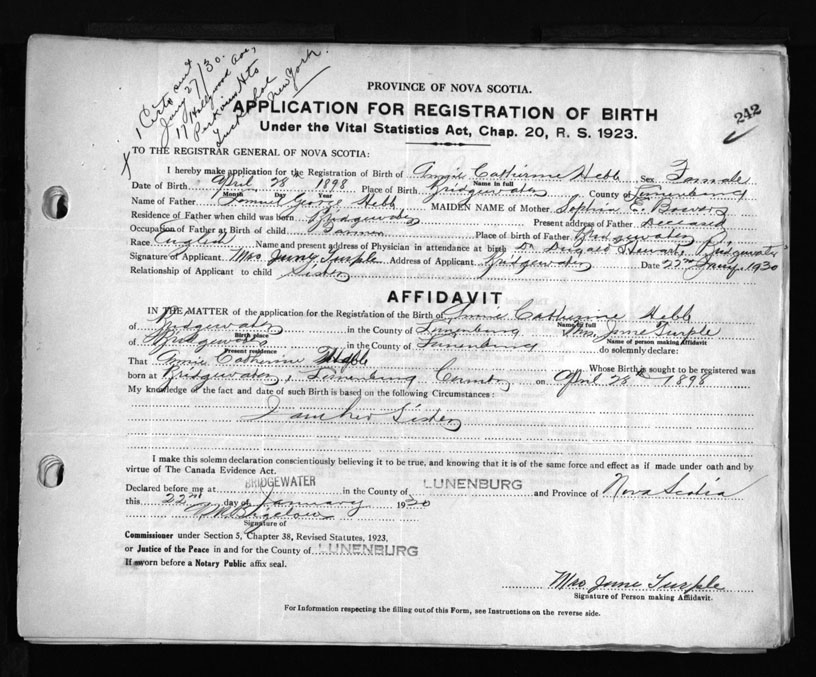 1 Certs sent
Jany 27/30.
17 Hollywood Ave,
Tuckahoe
New York.
X
242
PROVINCE OF NOVA SCOTIA.
APPLICATION FOR REGISTRATION OF BIRTH
Under the Vital Statistics Act, Chap. 20, R. S. 1923.
TO THE REGISTRAR GENERAL OF NOVA SCOTIA:
I hereby make application for the Registration of Birth of Annie Catherine Hebb Sex Female
Name in full
Date of Birth April 28 1898 Place of Birth Bridgewater County of Lunenburg
Month Day Year
Name of Father George Hebb MAIDEN NAME of Mother Sophia E.
Residence of Father when child was born Bridgewater Present address of Father Deceased
Occupation of Father at Birth of child Place of birth of Father Bridgewater
Race English Name and present address of Physician in attendance at birth Dr Bridgewater
Signature of Applicant Mrs Turple Address of Applicant Bridgewater Date 22nd Jany 1930
Relationship of Applicant to child Sister
AFFIDAVIT
IN THE MATTER of the application for the Registration of the Birth of Annie Catherine Hebb
Name in full
of Bridgewater in the County of Lunenburg Mrs Turple
Birth place Name of person making Affidavit
of Bridgewater in the County of Lunenburg do solemnly declare:
Present residence
That Annie Catherine Hebb Whose Birth is sought to be registered was
born at Bridgewater, Lunenburg County on April 28th 1898
My knowledge of the fact and date of such Birth is based on the following Circumstances:
I am her Sister
I make this solemn declaration conscientiously believing it to be true, and knowing that it is of the same force and effect as if made under oath and by
virtue of The Canada Evidence Act.
Declared before me at BRIDGEWATER in the County of LUNENBURG and Province of Nova Scotia
this 22nd day of January 1930
Signature of
Commissioner under Section 5, Chapter 38, Revised Statutes, 1923,
or Justice of the Peace in and for the County of LUNENBURG
If sworn before a Notary Public affix seal.
Mrs Turple
Signature of Person making Affidavit.
For Information respecting the filling out of this Form, see Instructions on the reverse side.